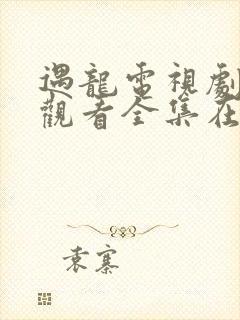 遇龍電視劇
觀看全集在
袁寨